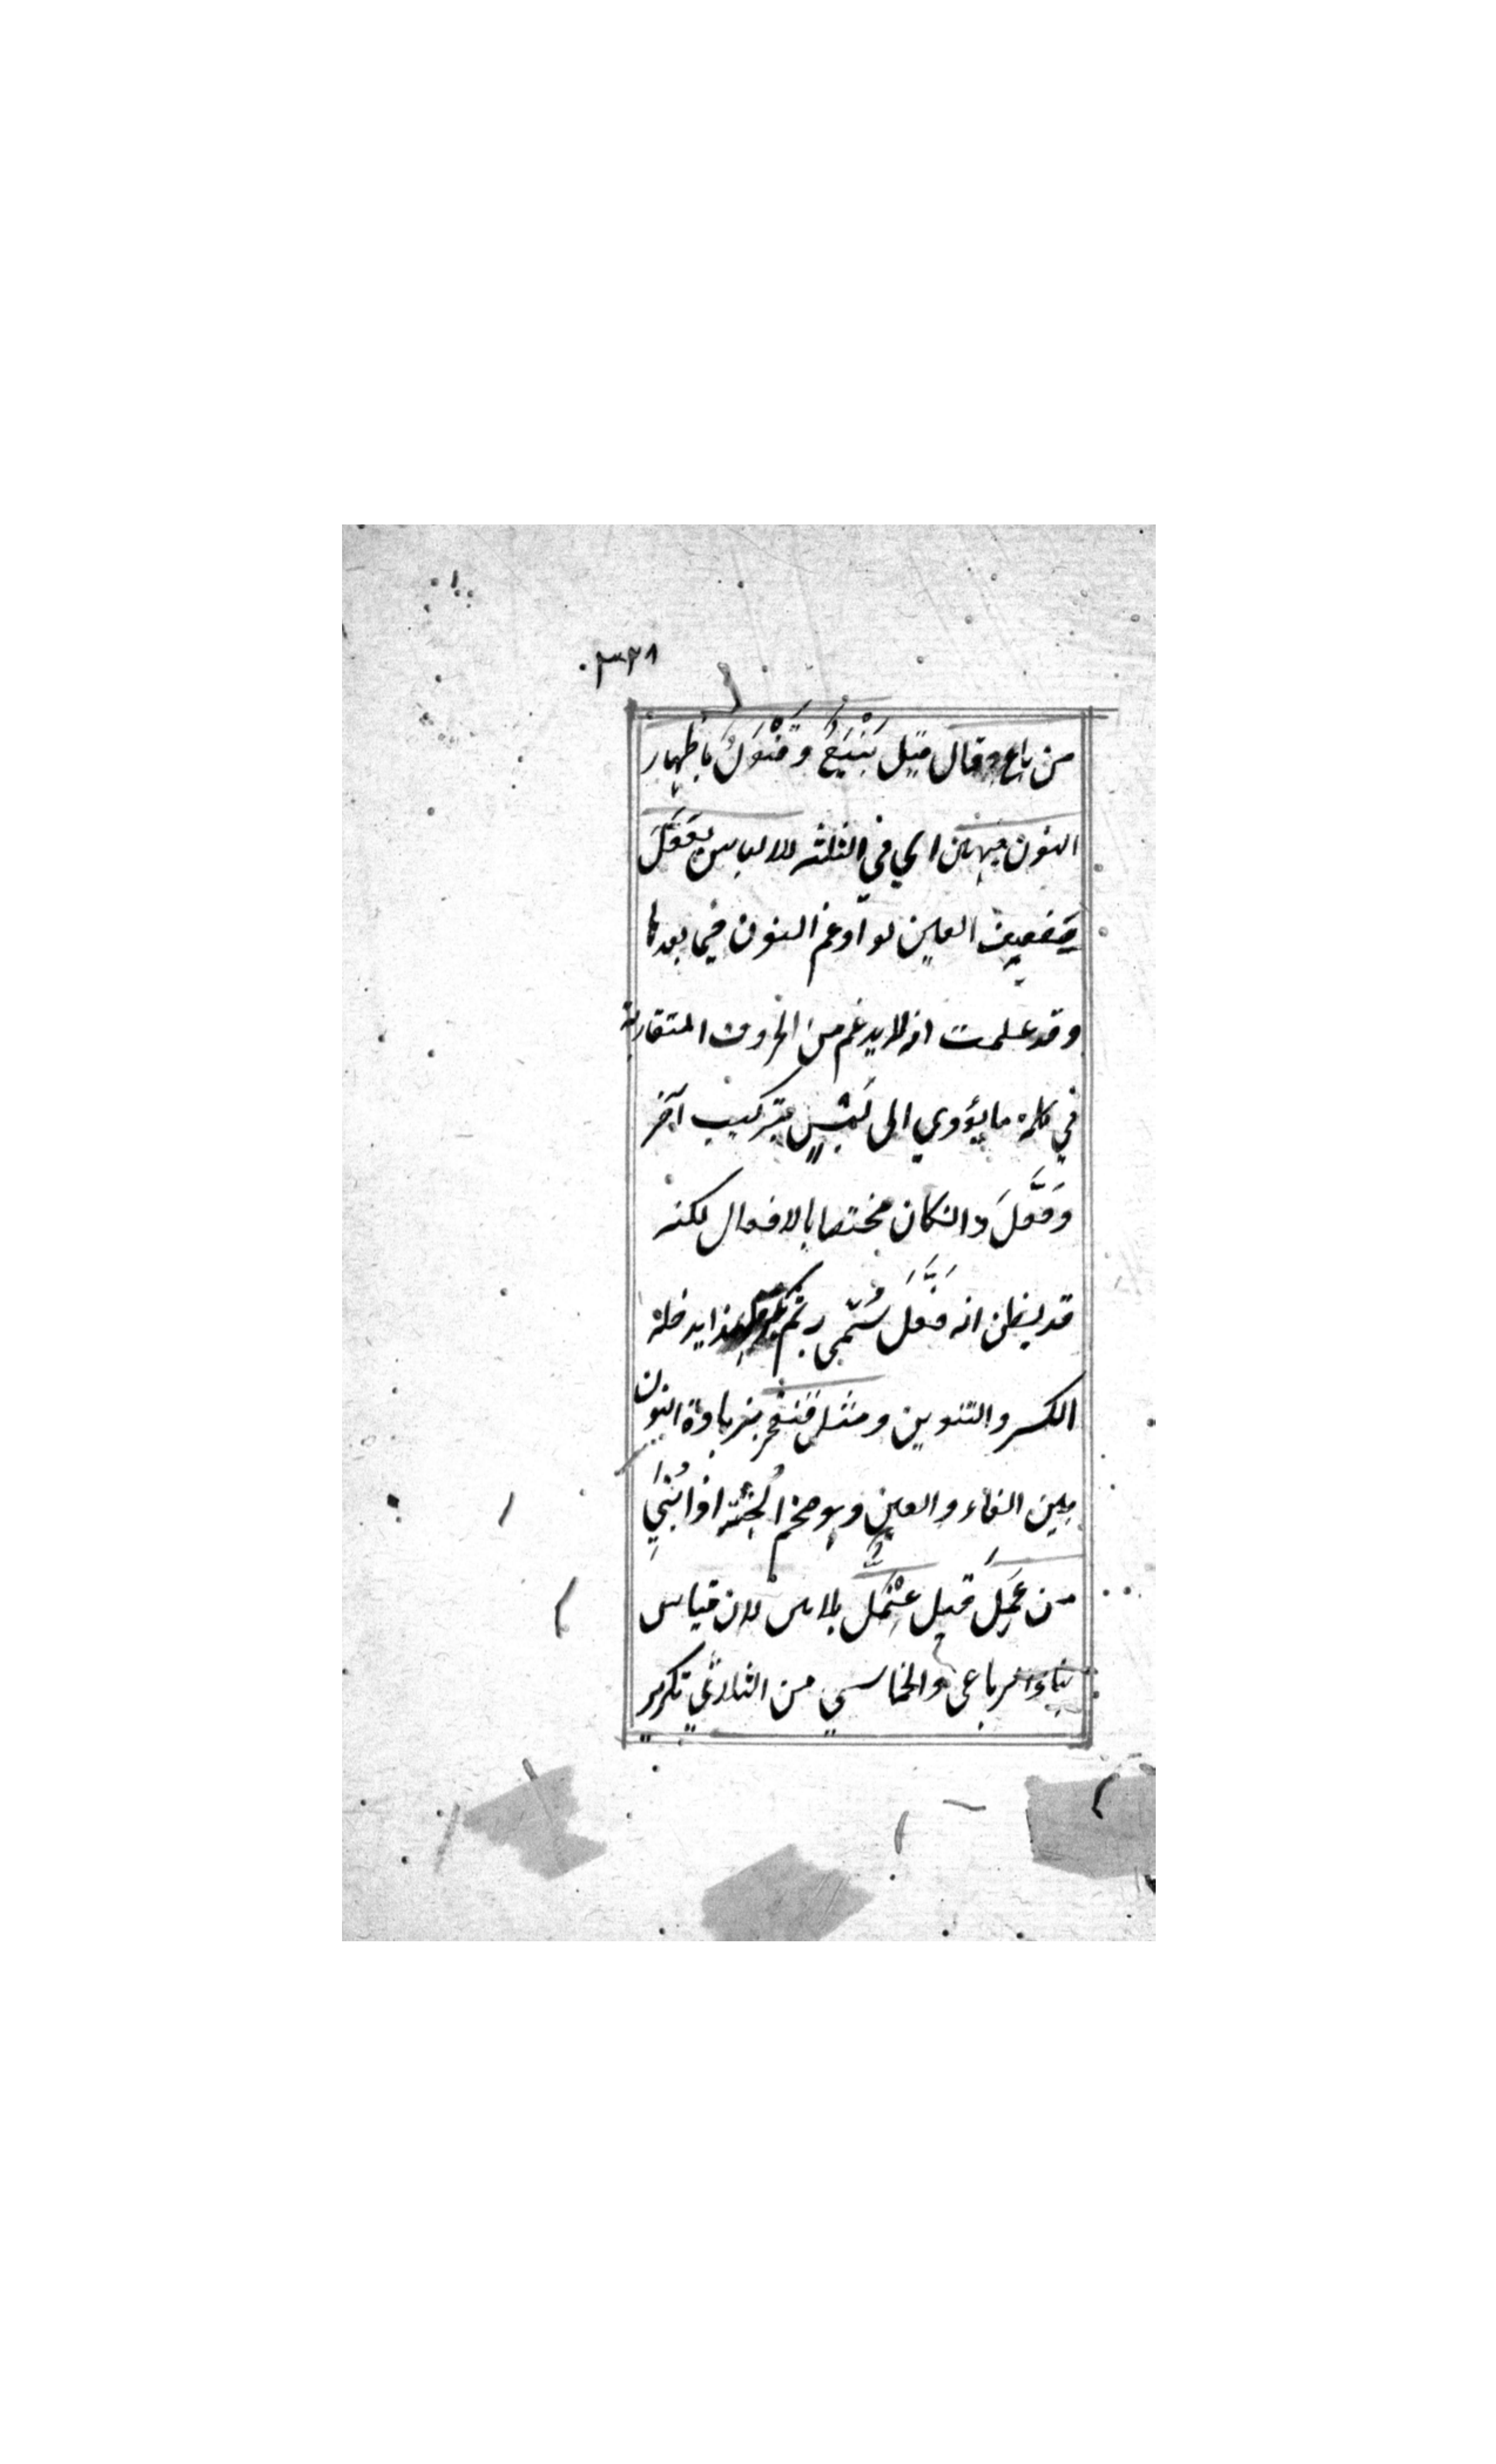 ٣٣٨
من باع وقال قيل بَنْيَعٌ وقَنْوَلٌ باظهار
النون فيهن اي في الثلثة للالباس بفَعَّلَ
بتضعيف العين لو ادغم النون فيما بعدها
وقد علمت انه لا يدغم من الحروف المتقاربة
في كلمة ما يؤدي الى لَبْسٍ بتركيب آخر
وفَعَّلَ وان كان مختصا بالافعال لكنه
قد يظن انه فَعَّلَ سُمّي به ثم نكر فلهذا يدخله
الكسر والتنوين ومثل قنفخر بزيادة النون
بين الفاء والعين وهو ضخم الجُثّة اذا بُنِيَ
من عَمِلَ قيل عِنْمَلٌّ بلا لان قياس
بناء الرباعي والخماسي من الثلاثي تكرير